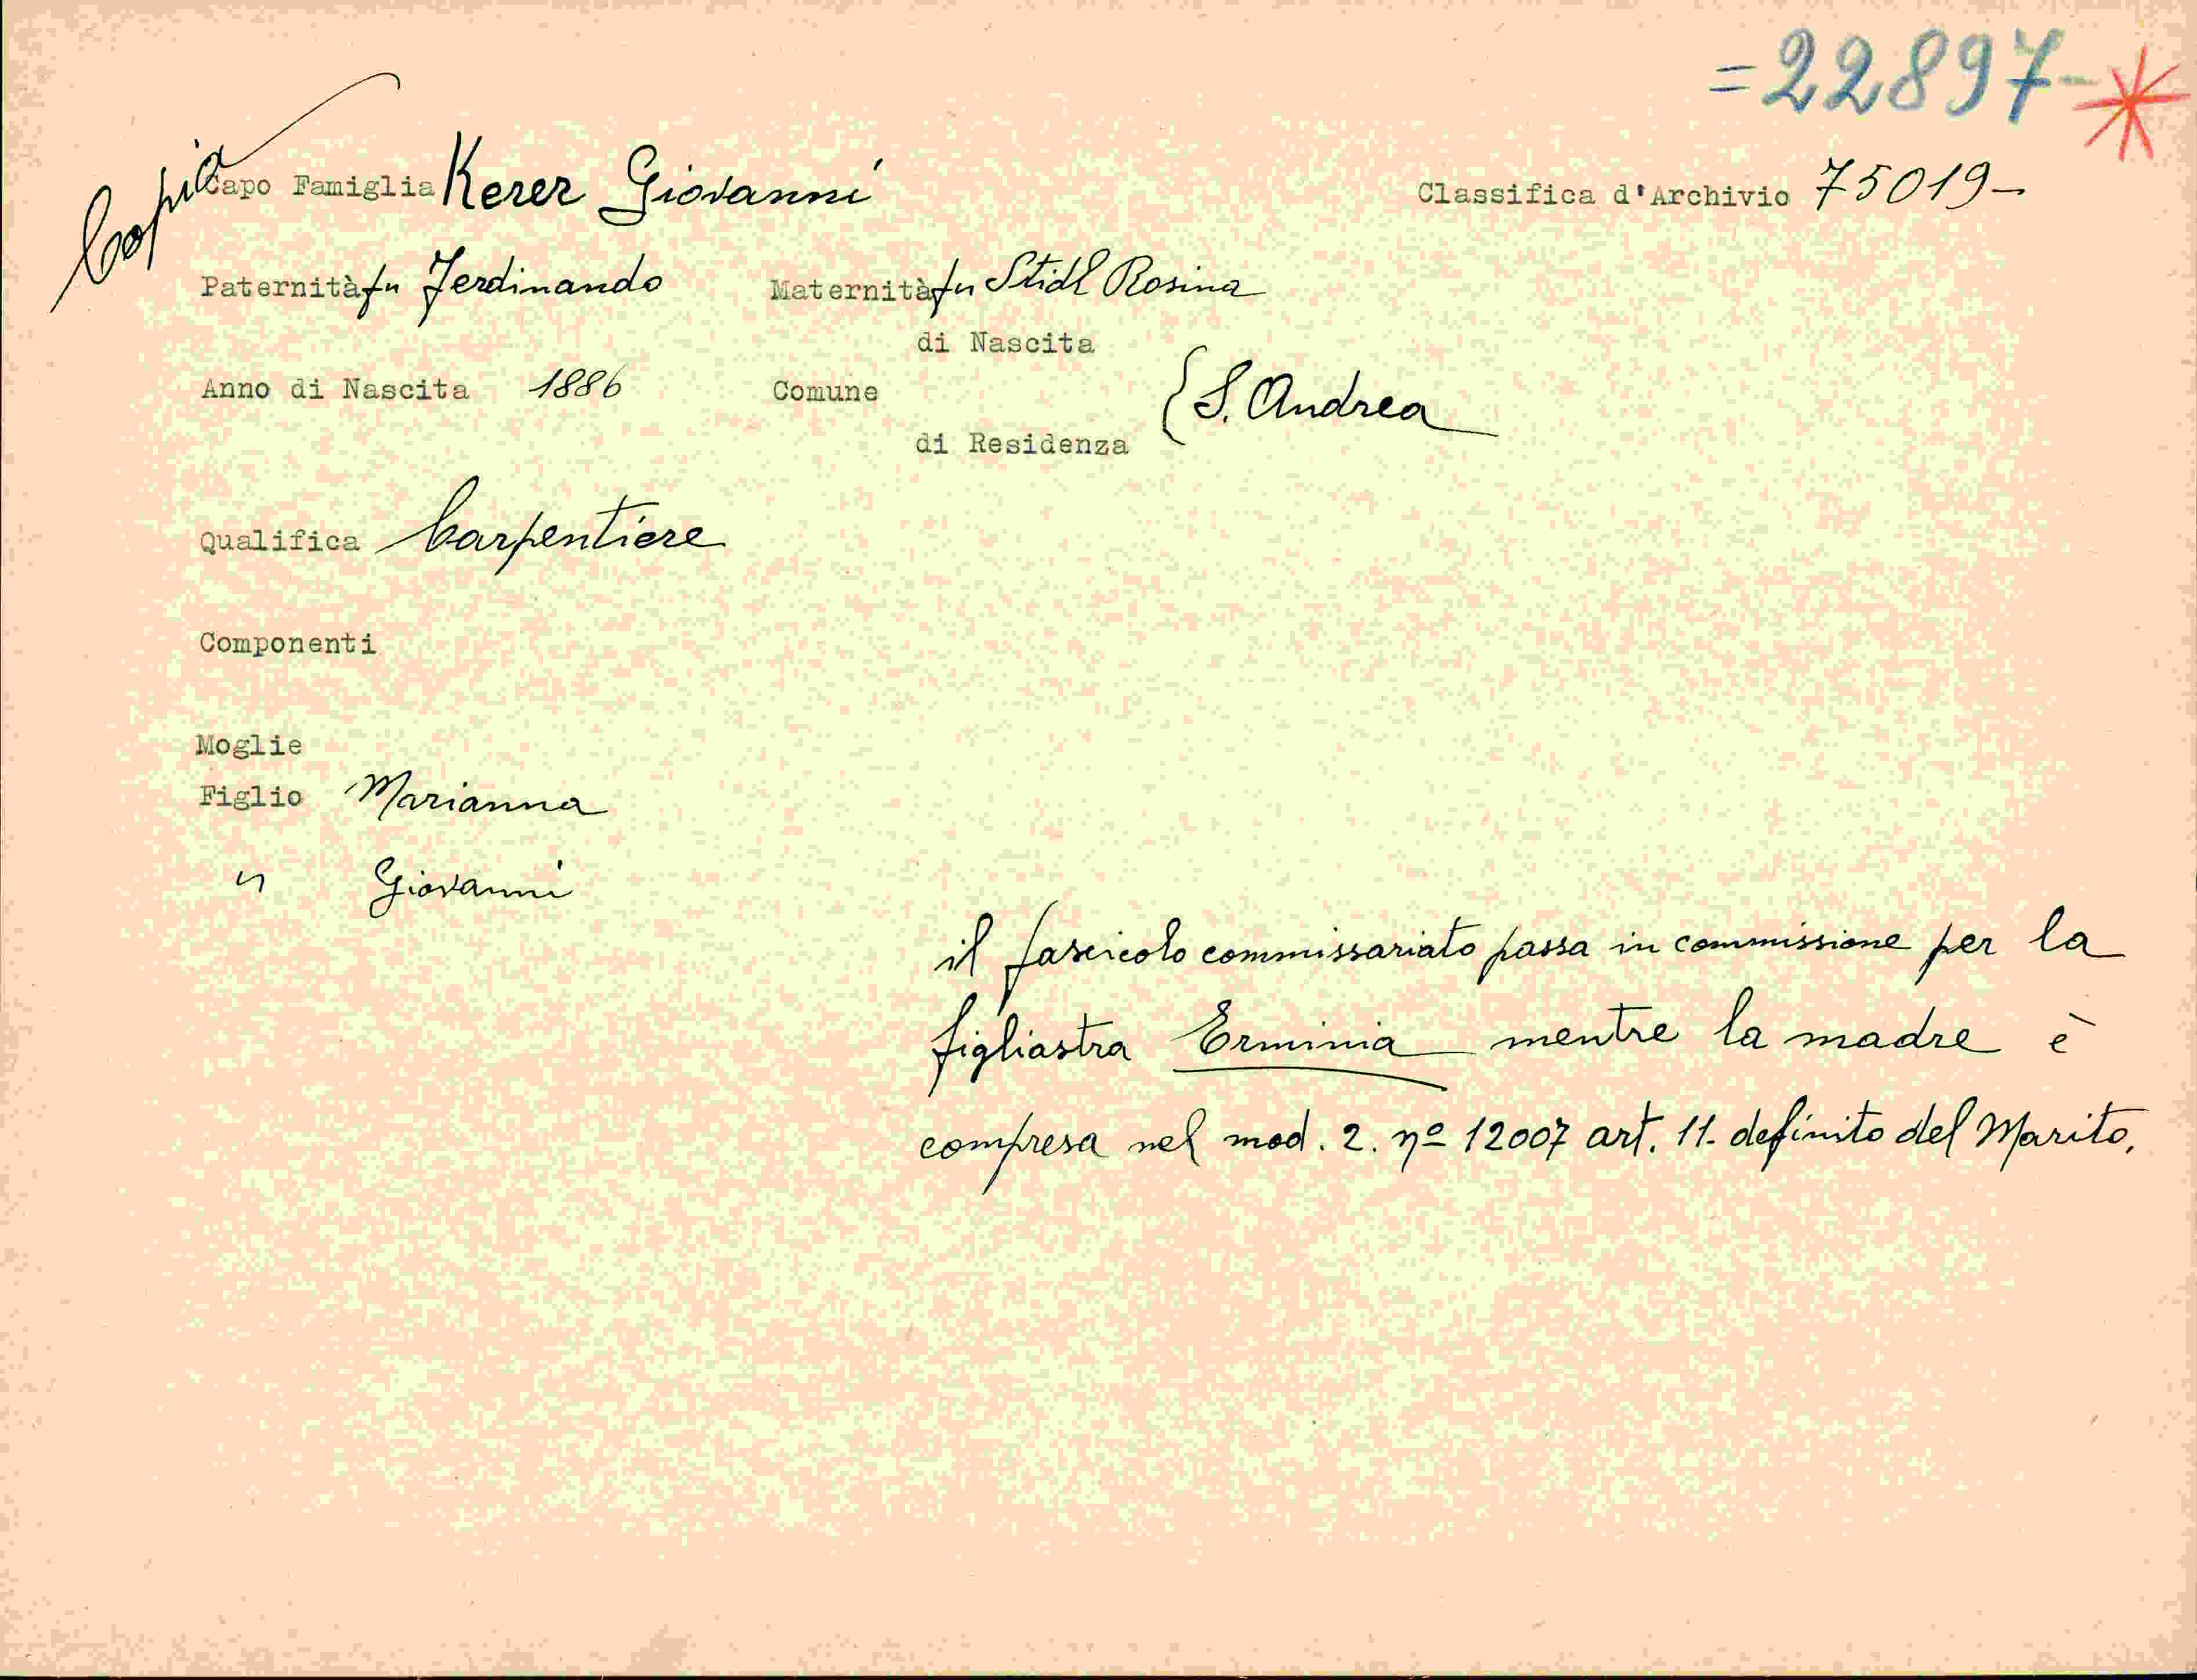 =22897-
Copia
Capo Famiglia Kerer Giovanni Classifica d'Archivio 75019-
Paternità fu Ferdinando Maternità fu Stidl Rosina
di Nascita
Anno di Nascita 1886 Comune { S. Andrea
di Residenza
Qualifica Carpentiere
Componenti
Moglie
Figlio Marianna
" Giovanni
il fascicolo commissariato passa in commissione per la
figliastra Erminia mentre la madre è
compresa nel mod. 2. nº 12007 art. 11. definito del Marito.